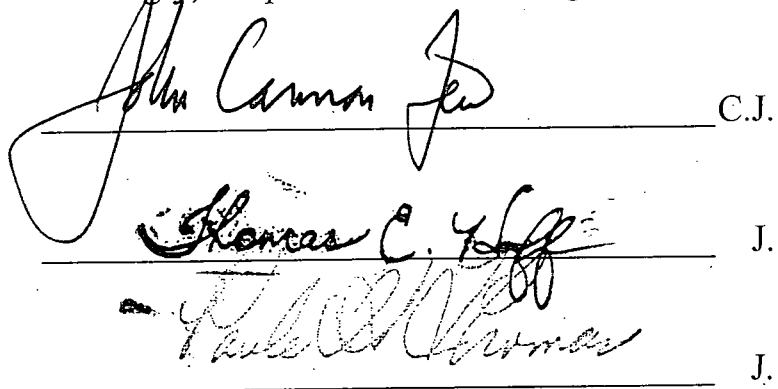 John Cannon Few C.J.
Thomas C. Huff J.
Paula H. Thomas J.